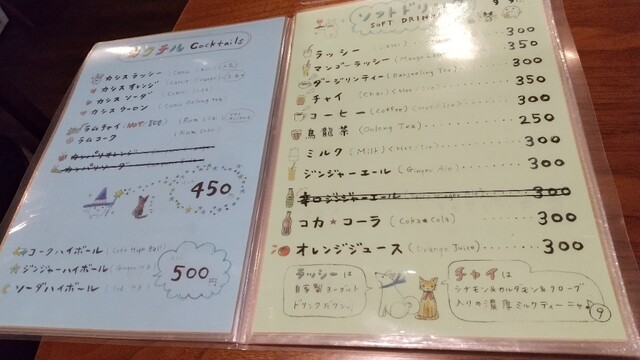 カクテル Cocktails
カシスラッシー
カシスオレンジ
カシスソーダ
カシスウーロン
ラムチャイ (HOT・ICE)
ラムコーク
カンパリオレンジ
カンパリソーダ
450
コークハイボール
ジンジャーハイボール
ソーダハイボール
500円
ソフトドリンク
SOFT DRINK
ラッシー 300
マンゴーラッシー 350
ダージリンティー (Darjeeling Tea) 300
チャイ (Chai) 350
コーヒー (Coffee) 300
烏龍茶 (Oolong Tea) 250
ミルク (Milk) 300
ジンジャーエール (Ginger Ale) 300
辛口ジンジャーエール 300
コカ★コーラ (Coka★Cola) 300
オレンジジュース (Orange Juice) 300
ラッシーは
自家製ヨーグルト
ドリンクだワン。
チャイは
シナモン&カルダモン&クローブ
入りの濃厚ミルクティーニャ♪
9